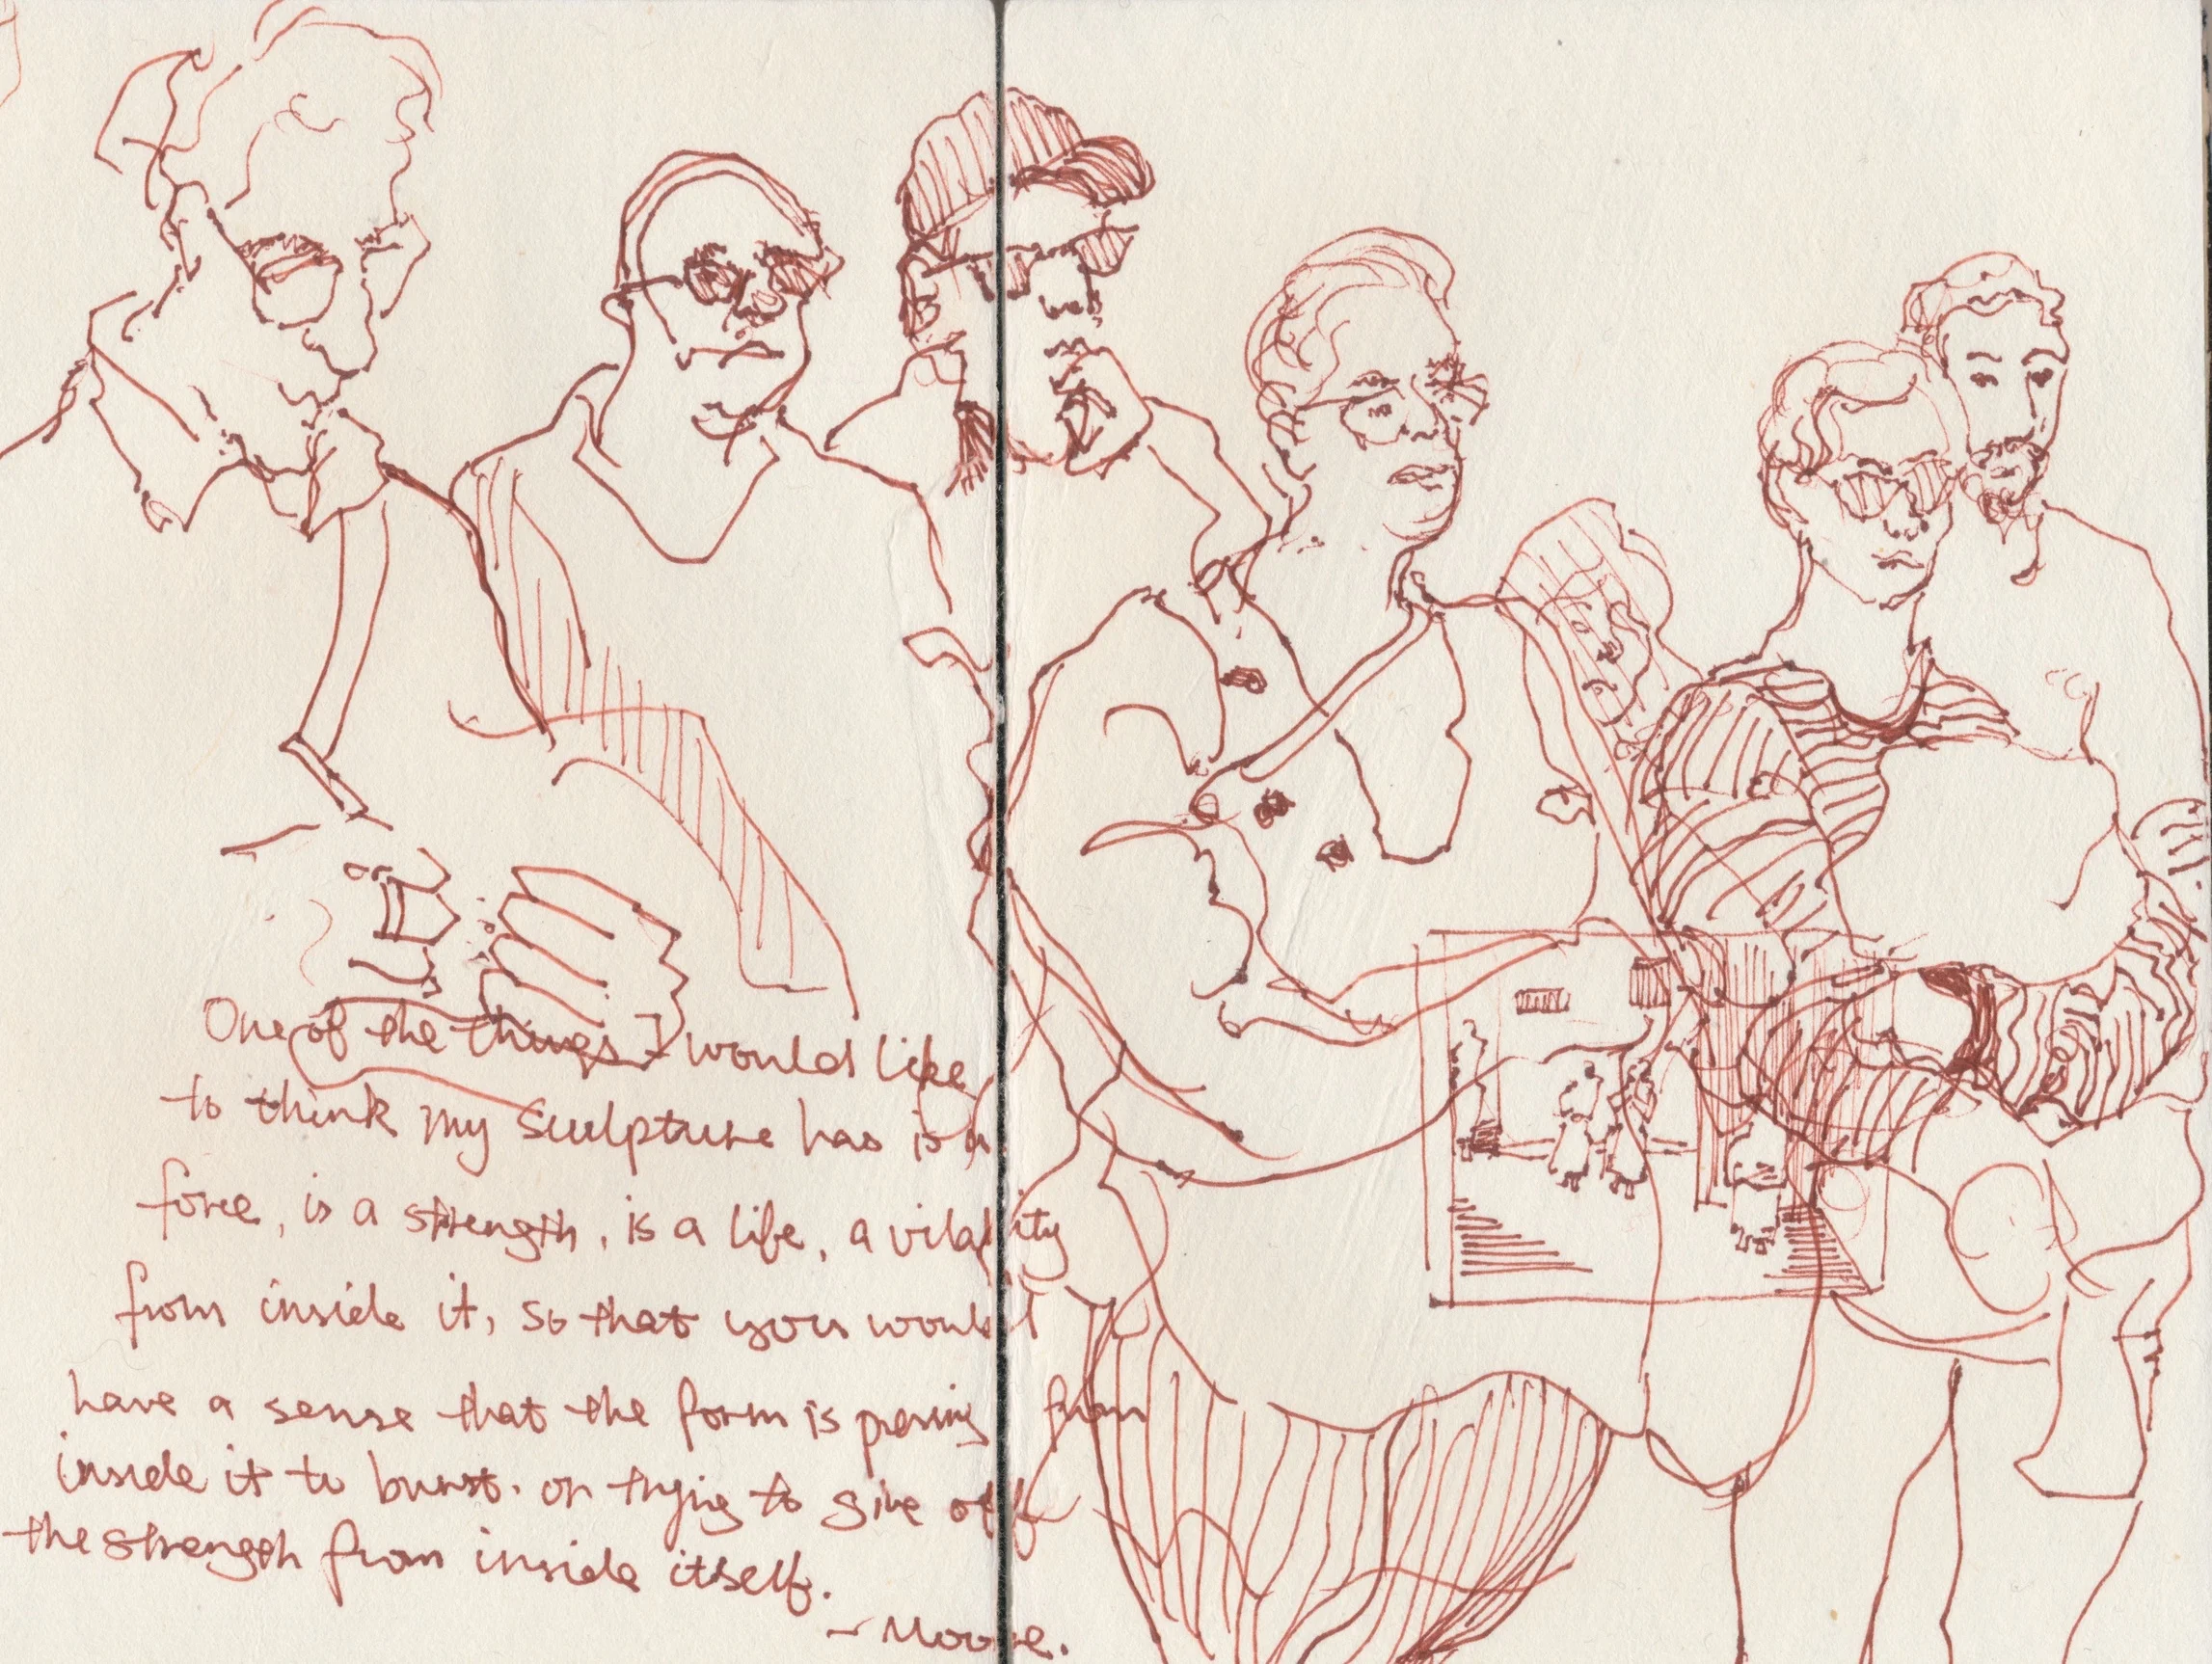 One of the things I would like
to think my sculpture has is a
force, is a strength, is a life, a vitality
from inside it, so that you would
have a sense that the form is pressing from
inside it to burst. or trying to give off
the strength from inside itself.
- Moore.